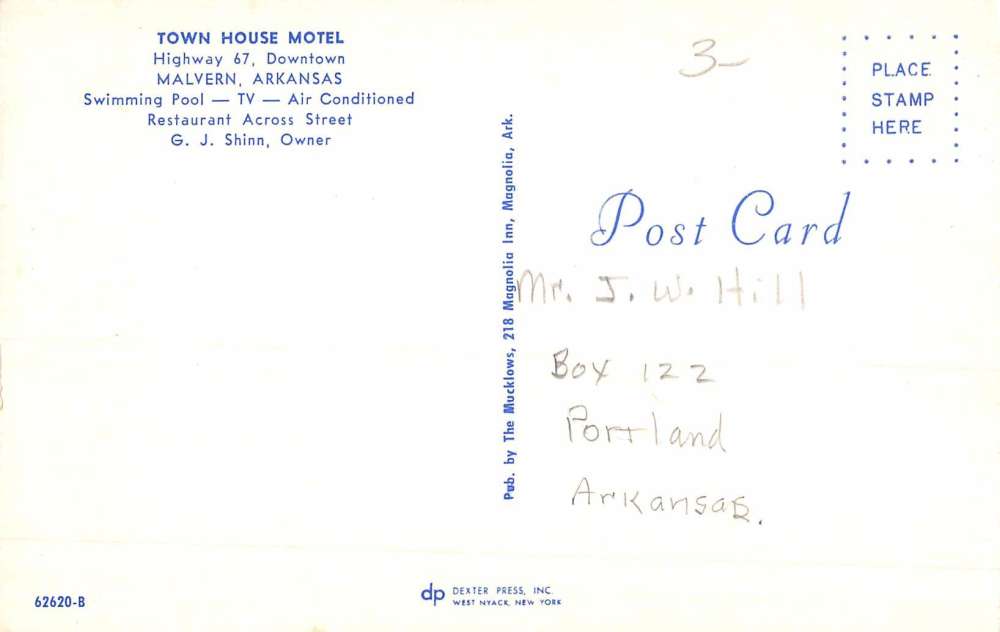 TOWN HOUSE MOTEL
Highway 67, Downtown
MALVERN, ARKANSAS
Swimming Pool — TV — Air Conditioned
Restaurant Across Street
G. J. Shinn, Owner
3-
PLACE
STAMP
HERE
Pub. by The Mucklows, 218 Magnolia Inn, Magnolia, Ark.
Post Card
Mr. J. W. Hill
Box 122
Portland
Arkansas.
62620-B
dp DEXTER PRESS, INC.
WEST NYACK, NEW YORK